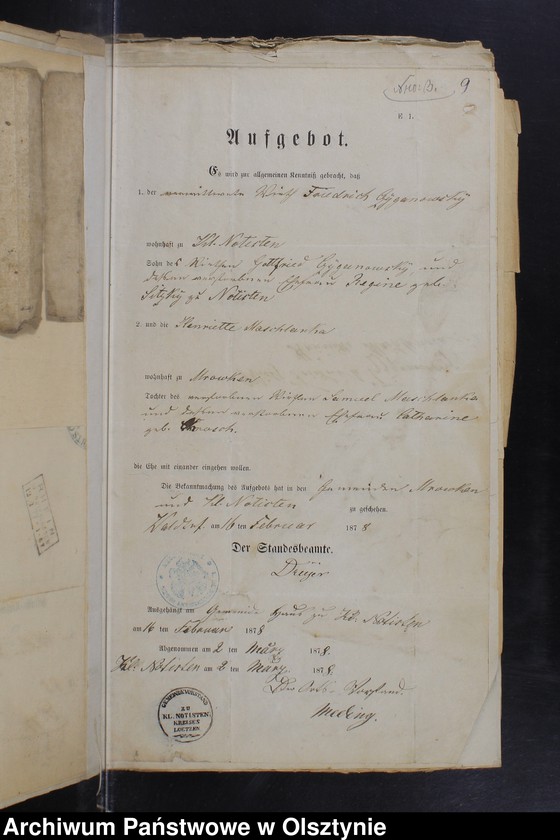 No: 13. 9
E 1.
Aufgebot.
Es wird zur allgemeinen Kenntniß gebracht, daß
1. der verwittwete Wirth Friedrich Cyganowsky
wohnhaft zu Kl. Notisten
Sohn des Wirthen Gottfried Cyganowsky, und
dessen verstorbenen Ehefrau Regine geb.
zu Notisten
2. und die Henriette Maschlanka
wohnhaft zu Mrowken
Tochter des verstorbenen Wirthen Samuel Maschlanka
und dessen verstorbenen Ehefrau Catharine
geb.
die Ehe mit einander eingehen wollen.
Die Bekanntmachung des Aufgebots hat in den Gemeinden Mrowken
und Kl. Notisten zu geschehen.
am 16 ten Februar 1878
Der Standesbeamte.
Ausgehängt am Gemeinde Haus zu Kl. Notisten
am 16 ten Februar 1878
Abgenommen am 2 ten März 1878.
Kl. Notisten am 2 ten März 1878.
Der Orts-Vorstand.
GEMEINDEVORSTAND
ZU
KL. NOTISTEN
KREISES
LOETZEN
Archiwum Państwowe w Olsztynie